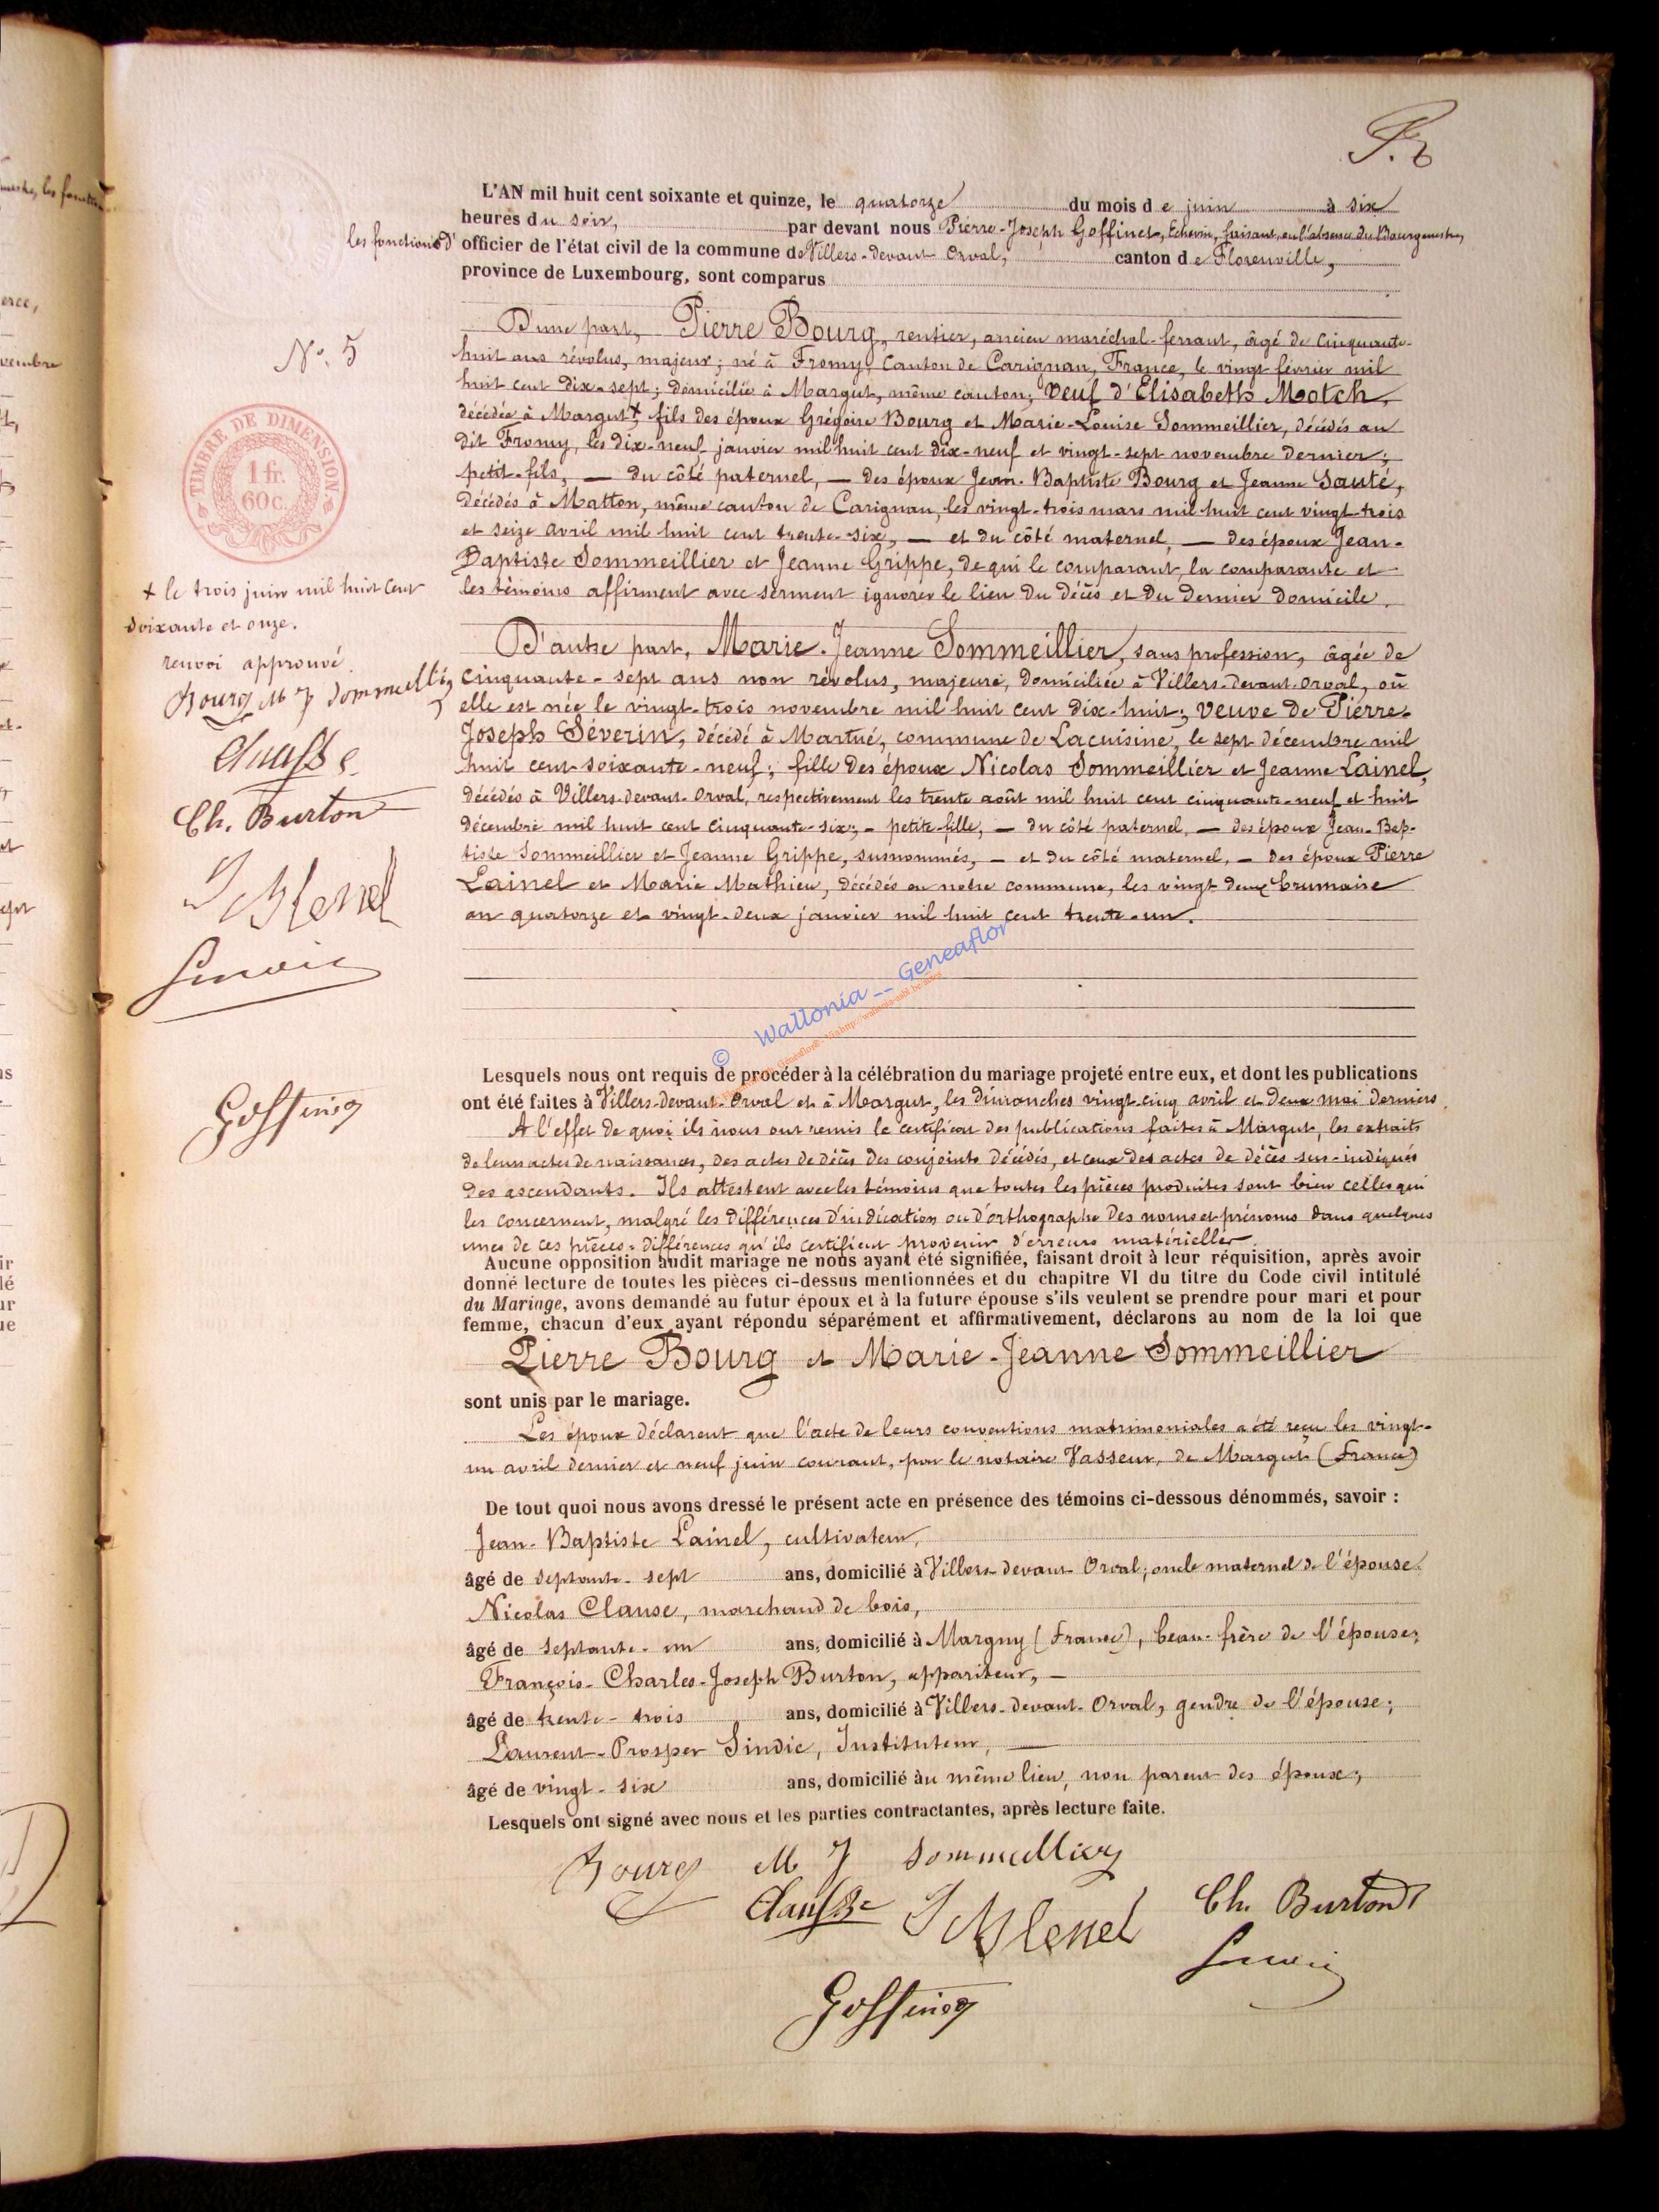 L'AN mil huit cent soixante et quinze, le quatorze du mois de juin à six
heures du soir, par devant nous Pierre-Joseph Goffinet, Echevin, faisant, en l'absence du Bourgmestre,
les fonctions d' officier de l'état civil de la commune de Villers-devant Orval, canton de Florenville,
province de Luxembourg, sont comparus
N° 5
D'une part, Pierre Bourg, rentier, ancien maréchal-ferrant, âgé de cinquante-
huit ans révolus, majeur; né à Fromy, Canton de Carignan, France, le vingt février mil
huit cent dix-sept; domicilié à Margut, même canton; veuf d'Elisabeth Motch,
décédée à Margut+ fils des époux Grégoire Bourg et Marie-Louise Sommeillier, décédés au
dit Fromy, les dix-neuf janvier mil huit cent dix-neuf et vingt-sept novembre dernier;
petit-fils, — du côté paternel, — des époux Jean-Baptiste Bourg et Jeanne Sauté,
décédés à Matton, même canton de Carignan, les vingt-trois mars mil huit cent vingt-trois
et seize avril mil huit cent trente-six, — et du côté maternel, — des époux Jean-
Baptiste Sommeillier et Jeanne Grippe, de qui le comparant, la comparante et
les témoins affirment avec serment ignorer le lieu du décès et du dernier domicile.
TIMBRE DE DIMENSION
1 fr.
60 c.
+ le trois juin mil huit cent
soixante et onze.
renvoi approuvé
Bourg M J Sommeillier
Clausse
Ch. Burton
Goffinet
D'autre part, Marie-Jeanne Sommeillier, sans profession, âgée de
cinquante-sept ans non révolus, majeure, domiciliée à Villers-devant-Orval, où
elle est née le vingt-trois novembre mil huit cent dix-huit; veuve de Pierre-
Joseph Séverin, décédé à Martué, commune de Lacuisine, le sept décembre mil
huit cent soixante-neuf; fille des époux Nicolas Sommeillier et Jeanne Lainel,
décédés à Villers-devant-Orval, respectivement les trente août mil huit cent cinquante-neuf et huit
décembre mil huit cent cinquante-six; — petite-fille, — du côté paternel, — des époux Jean-Bap-
tiste Sommeillier et Jeanne Grippe, susnommés, — et du côté maternel, — des époux Pierre
Lainel et Marie Mathieu, décédés en notre commune, les vingt-deux brumaire
an quatorze et vingt-deux janvier mil huit cent trente-un.
© Wallonia -- Geneaflor
Lesquels nous ont requis de procéder à la célébration du mariage projeté entre eux, et dont les publications
ont été faites à Villers-devant-Orval et à Margut, les dimanches vingt-cinq avril et deux mai derniers.
A l'effet de quoi ils nous ont remis le certificat des publications faites à Margut, les extraits
de leurs actes de naissances, des actes de décès des conjoints décédés, et ceux des actes de décès sus-indiqués
des ascendants. Ils attestent avec les témoins que toutes les pièces produites sont bien celles qui
les concernent, malgré les différences d'indication ou d'orthographe des noms et prénoms dans quelques
unes de ces pièces, différences qu'ils certifient provenir d'erreurs matérielles.
Aucune opposition audit mariage ne nous ayant été signifiée, faisant droit à leur réquisition, après avoir
donné lecture de toutes les pièces ci-dessus mentionnées et du chapitre VI du titre du Code civil intitulé
du Mariage, avons demandé au futur époux et à la future épouse s'ils veulent se prendre pour mari et pour
femme, chacun d'eux ayant répondu séparément et affirmativement, déclarons au nom de la loi que
Pierre Bourg et Marie-Jeanne Sommeillier
sont unis par le mariage.
Les époux déclarent que l'acte de leurs conventions matrimoniales a été reçu les vingt-
un avril dernier et neuf juin courant, par le notaire Vasseur, de Margut (France)
De tout quoi nous avons dressé le présent acte en présence des témoins ci-dessous dénommés, savoir :
Jean-Baptiste Lainel, cultivateur,
âgé de septante-sept ans, domicilié à Villers-devant-Orval; oncle maternel de l'épouse.
Nicolas Clause, marchand de bois,
âgé de septante-un ans, domicilié à Margny (France), beau-frère de l'épouse;
François-Charles-Joseph Burton, appariteur, —
âgé de trente-trois ans, domicilié à Villers-devant-Orval, gendre de l'épouse;
Laurent-Prosper Sindic, Instituteur, —
âgé de vingt-six ans, domicilié àu même lieu, non parent des époux;
Lesquels ont signé avec nous et les parties contractantes, après lecture faite.
Bourg M J Sommeillier
Clausse Ch. Burton
Goffinet